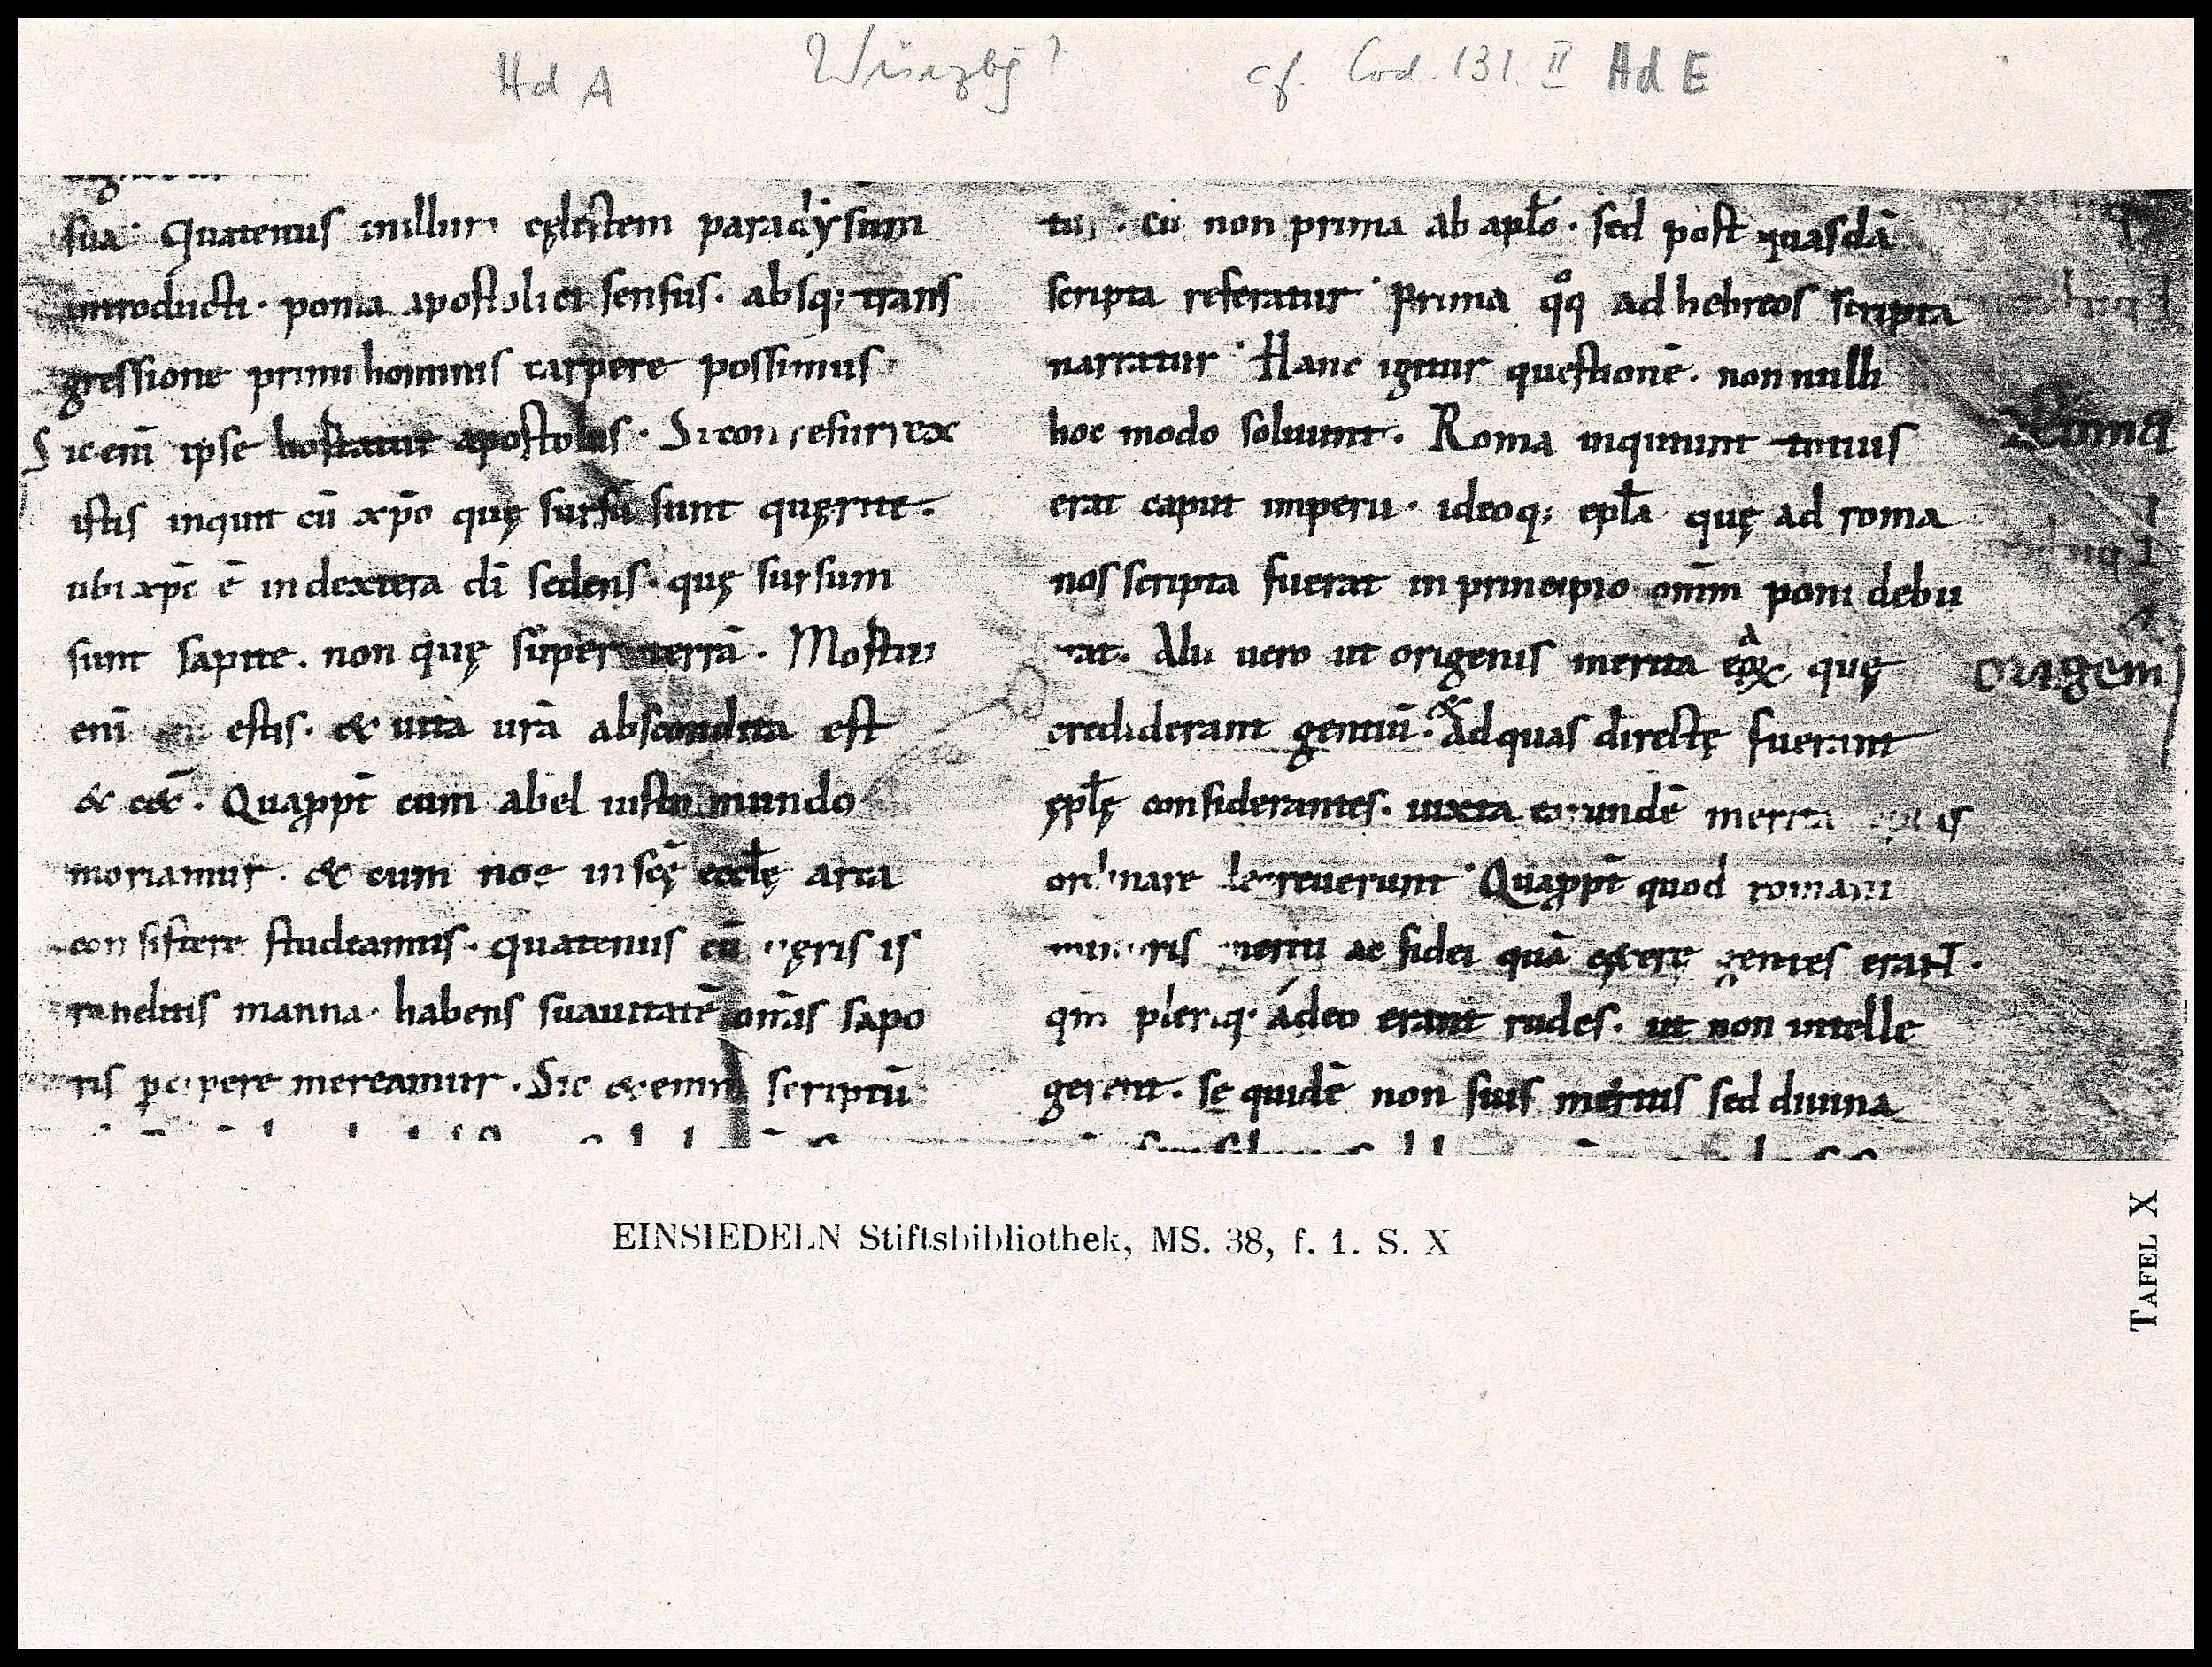 Hd A Würzbg? cf. Cod. 131. II Hd E
sua· Quatenus in illum cęlestem paradysum
introducti· poma apostolici sensus· absq; trans
gressione primi hominis carpere possimus·
Sic enī ipse hostatur apostolus· Si conresurrex
istis inquit cū xp̄o quę sursū sunt quęrite·
ubi xp̄c ē in dextera dī sedens· quę sursum
sunt sapite· non quę super terrā· Mortui
enī estis· & uita urā abscondita est
& cę&̄· Quappt̄ cum abel iusto mundo
moriamur· & cum noe in scę̄ eccłę arca
consistere studeamus· quatenus cū ueris is
rahelitis manna· habens suauitatē om̄is sapo
ris p̱cipere mereamur· Sic &enim scriptū
tur· cū non prima ab apło· sed post quasdā
scripta referatur· Prima qͦq ad hebreos scripta
narratur· Hanc igitur questionē· non nulli
hoc modo soluunt· Roma inquiunt totius
erat caput imperii· ideoq; epła quę ad roma
nos scripta fuerat in principio om̄m poni debu
rat· Alii uero ut origenis merita eoꝝ quę
crediderant gentiū· Ad quas directę fuerunt
ępłę considerantes· iuxta eorundē merita
ordinare decreuerunt· Quappt̄ quod romani
maioris meriti ac fidei quā cę&erę gentes erant·
qm̄ pleriq· ádeo erant rudes· ut non intelle
gerent· se quidē non suis meritis sed diuina
Roma
Origeni
EINSIEDELN Stiftsbibliothek, MS. 38, f. 1. S. X
TAFEL X